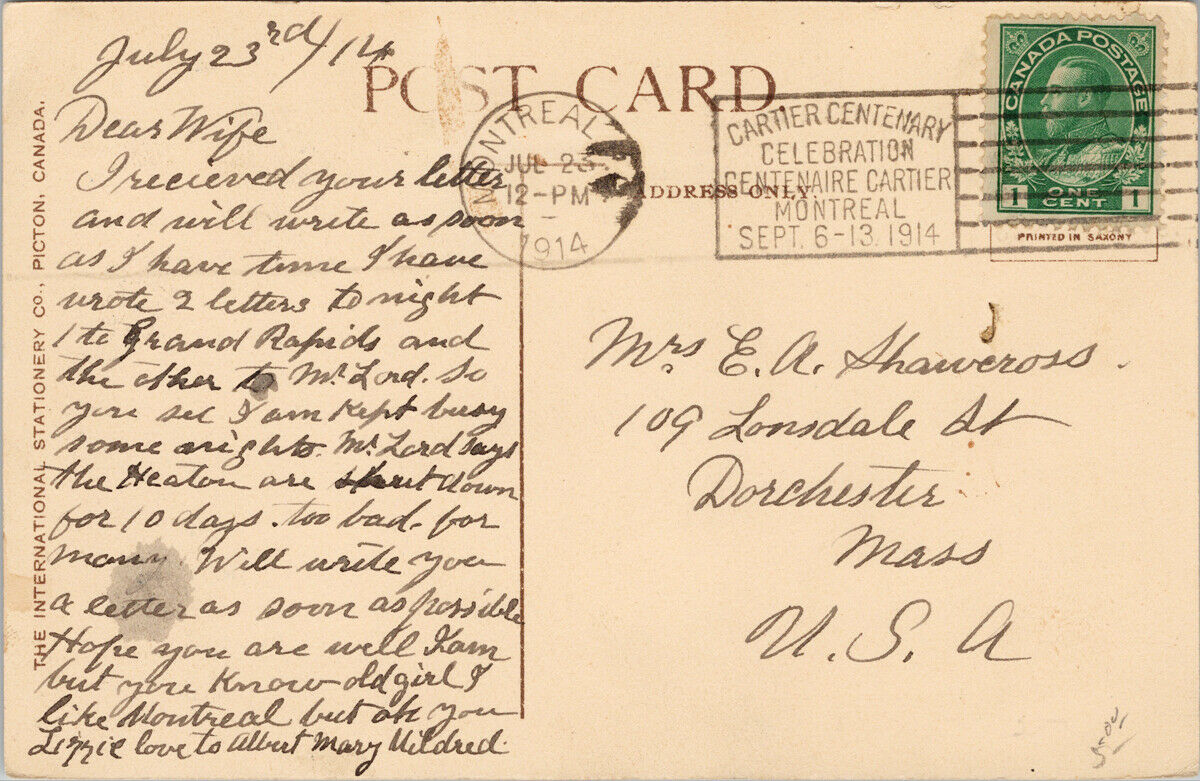 July 23rd/14
POST CARD.
Dear Wife
I recieved your letter
and will write as soon
as I have time I have
wrote 2 letters to night
1 to Grand Rapids and
the other to Mr Lord. So
you see I am kept busy
some nights. Mr Lord says
the Heaton are shut down
for 10 days. too bad. for
many. Will write you
a letter as soon as possible
Hope you are well I am
but you know old girl I
like Montreal but oh you
Lizzie love to Albert Mary Mildred.
THE INTERNATIONAL STATIONERY CO., PICTON, CANADA.
MONTREAL
JUL 23
12-PM
1914
CARTIER CENTENARY
CELEBRATION
CENTENAIRE CARTIER
MONTREAL
SEPT. 6-13. 1914
ADDRESS ONLY
CANADA POSTAGE
1 ONE CENT 1
PRINTED IN SAXONY
Mrs E. A. Shawcross.
109 Lonsdale St
Dorchester
Mass
U. S. A